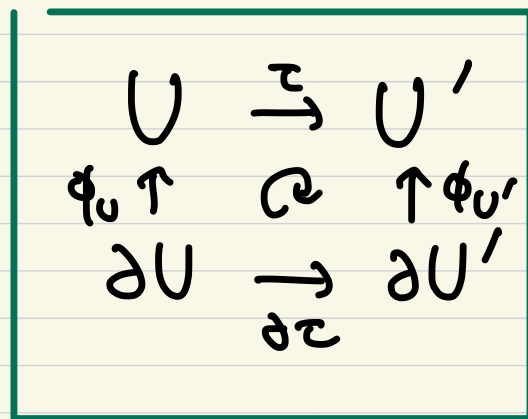 U τ→ U'
ϕ_U ↑ ↻ ↑ ϕ_U'
∂U → ∂U'
∂τ